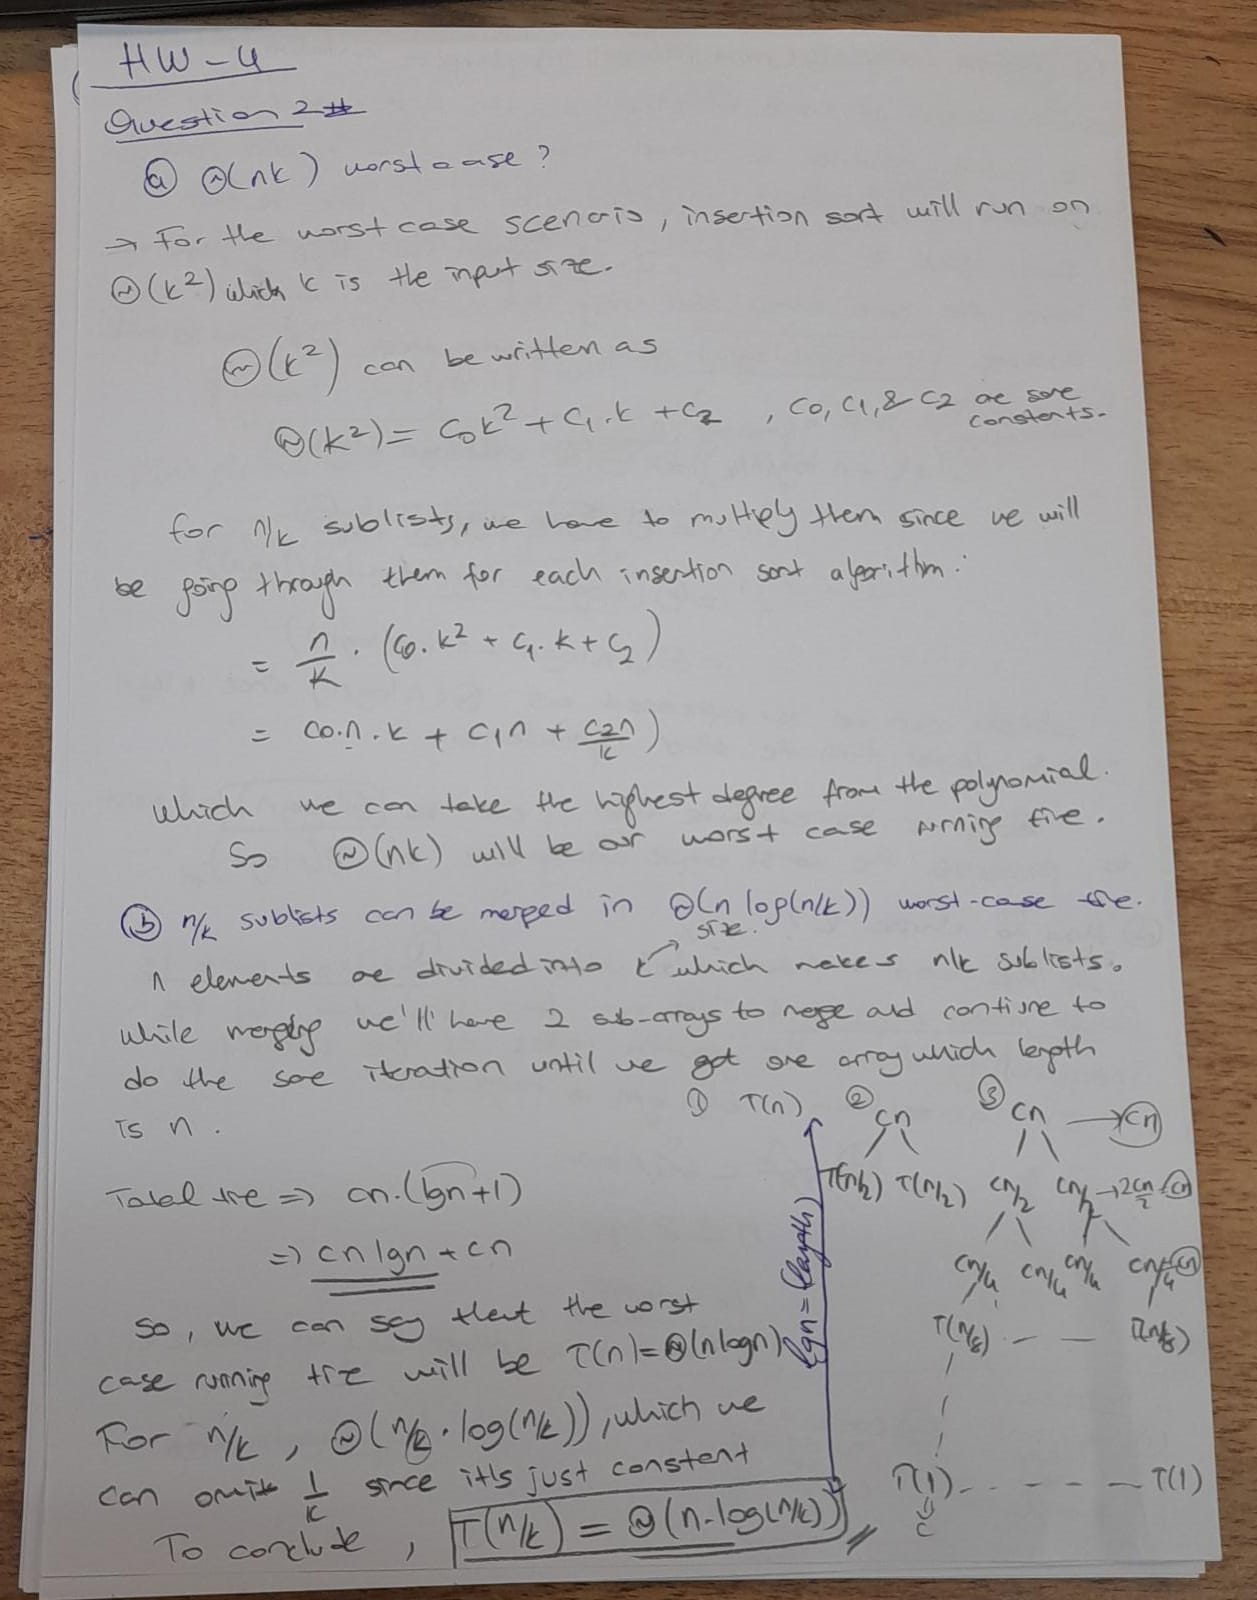 HW-4
Question 2
ⓐ Θ(nk) worst case?
→ For the worst case scenario, insertion sort will run on
Θ(k²) which k is the input size.
Θ(k²) can be written as
Θ(k²) = c₀k² + c₁.k + c₂ , c₀, c₁, & c₂ are some
constants.
for n/k sublists, we have to multiply them since we will
be going through them for each insertion sort algorithm.
= n/k . (c₀.k² + c₁.k + c₂)
= c₀.n.k + c₁n + c₂n/k)
which we can take the highest degree from the polynomial.
So Θ(nk) will be our worst case running time.
ⓑ n/k sublists can be merged in Θ(n log(n/k)) worst-case time.
size.
n elements are divided into k which makes n/k sublists.
while merging we'll have 2 sub-arrays to merge and continue to
do the same iteration until we get one array which length
is n.
① T(n) ② cn ③ cn → cn
T(n/2) T(n/2) cn/2 cn/2 → 2cn/2 = cn
Total time => cn.(lgn+1)
=> cn lgn + cn
cn/4 cn/4 cn/4 cn/4 = cn
lgn = (length)
So, we can say that the worst
T(n/8) - - T(n/8)
case running time will be T(n)=Θ(nlogn)
For n/k, Θ(n/k . log(n/k)), which we
can omit 1/k since it's just constant
T(1) - - - - T(1)
c
To conclude, T(n/k) = Θ(n.log(n/k))